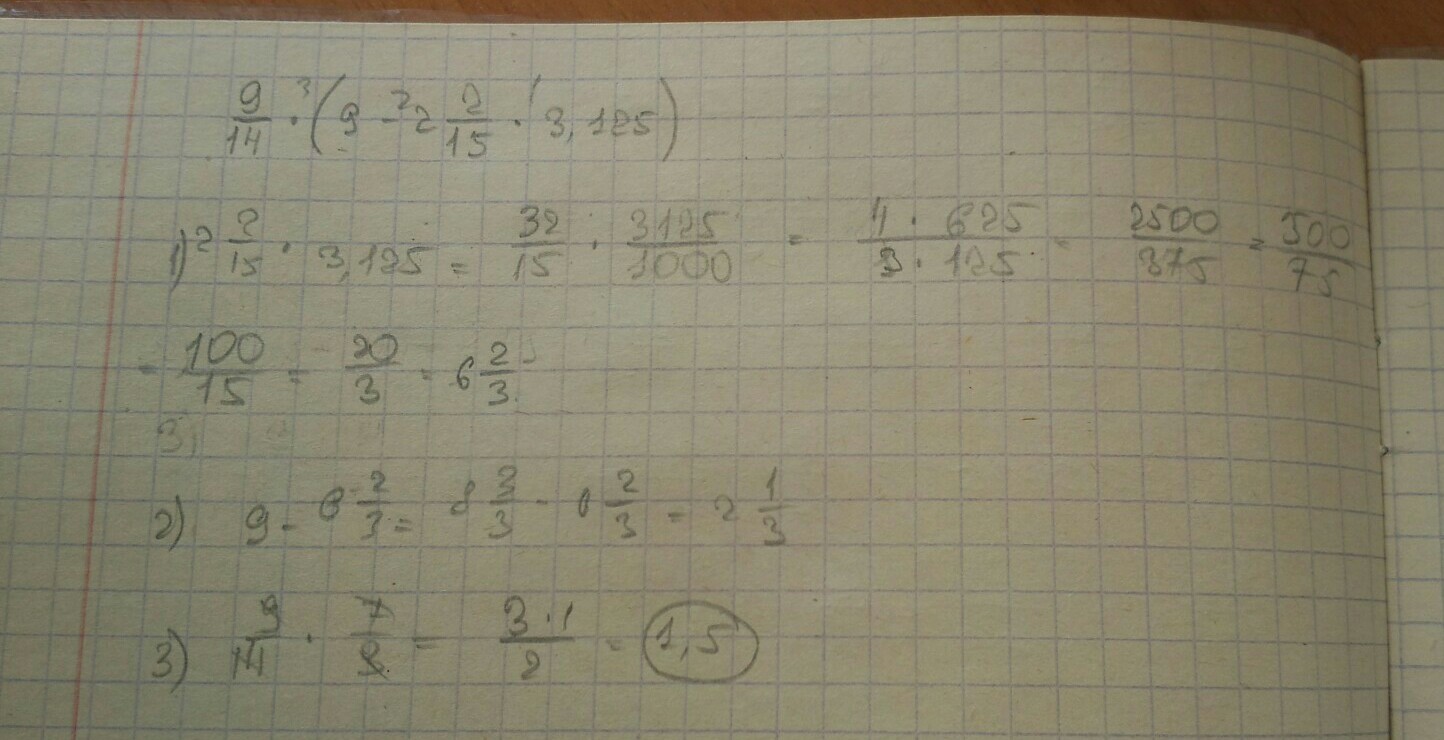 9/14 · ³ (9 - ² 2 2/15 · ¹ 3,125)
1) 2 2/15 · 3,125 = 32/15 · 3125/1000 = 4 · 625/3 · 125 = 2500/375 = 500/75
= 100/15 = 20/3 = 6 2/3
3)
2) 9 - 6 2/3 = 8 3/3 - 6 2/3 = 2 1/3
3) 9/14 · 7/3 = 3 · 1/2 = 1,5